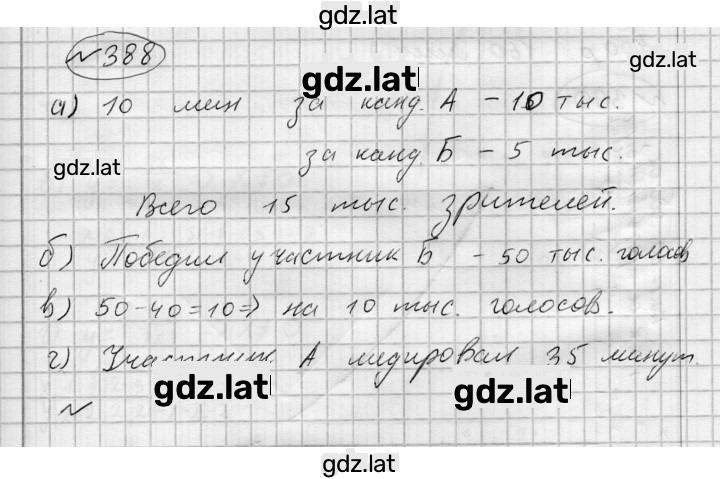 gdz.lat
№388
gdz.lat
gdz.lat
а) 10 мин за канд. А - 10 тыс.
за канд. Б - 5 тыс.
gdz.lat
Всего 15 тыс. зрителей.
б) Победил участник Б - 50 тыс. голосов
в) 50-40=10=> на 10 тыс. голосов.
г) Участник А лидировал 35 минут.
gdz.lat
gdz.lat
№
gdz.lat